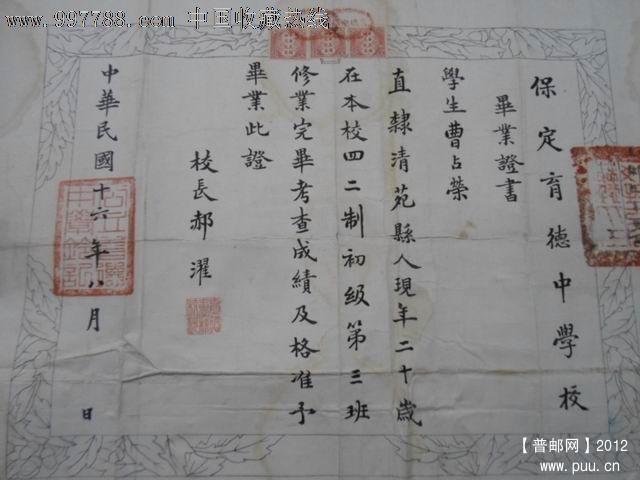 www.997788.com 中国收藏热线
保定育德中學校
畢業證書
學生曹占榮
直隸清苑縣人現年二十歲
在本校四二制初級第三班
修業完畢考查成績及格准予
畢業此證
校長郝濯
中華民國十六年八月 日
【普邮网】2012
www.puu.cn